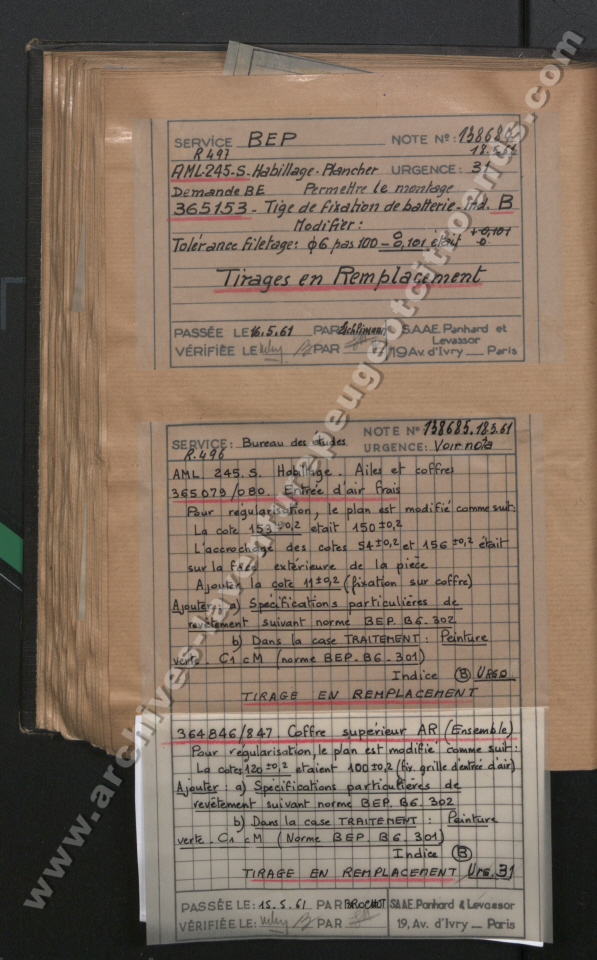 SERVICE BEP NOTE Nº: 138684
R 497 18.5.61
AML-245-S-Habillage-Plancher URGENCE: 31
Demande BE Permettre le montage
365153 - Tige de fixation de batterie - Ind. B
Modifier:
Tolérance filetage: ϕ6 pas 100 -0,101 était +0,101
0 0
Tirages en Remplacement
PASSÉE LE 16.5.61 PAR S.A.A.E. Panhard et
Levassor
VÉRIFIÉE LE PAR 19 Av. d'Ivry — Paris
NOTE Nº 138685.18.5.61
SERVICE: Bureau des études URGENCE: Voir nota
R.496
AML 245.S. Habillage. Ailes et coffres
365079/080 Entrée d'air frais
Pour régularisation, le plan est modifié comme suit:
La cote 153±0,2 était 150±0,2
L'accrochage des cotes 54±0,2 et 156±0,2 était
sur la face extérieure de la pièce
Ajouter la cote 11±0,2 (fixation sur coffre)
Ajouter: a) Spécifications particulières de
revêtement suivant norme BEP. B6.302
b) Dans la case TRAITEMENT: Peinture
verte. C1 cM (norme BEP-B6.301)
Indice B
TIRAGE EN REMPLACEMENT
364846/847 Coffre supérieur AR (Ensemble)
Pour régularisation, le plan est modifié comme suit:
La cotes 120±0,2 étaient 100±0,2 (fix. grille d'entrée d'air)
Ajouter: a) Spécifications particulières de
revêtement suivant norme BEP. B6.302
b) Dans la case TRAITEMENT: Peinture
verte. C1 cM (Norme BEP B6.301)
Indice B
TIRAGE EN REMPLACEMENT Urg. 31
PASSÉE LE: 15.5.61 PAR BROCHOT S.A.A.E. Panhard & Levassor
VÉRIFIÉE LE: PAR 19, Av. d'Ivry — Paris
www.archives-laventurepeugeotcitroends.com